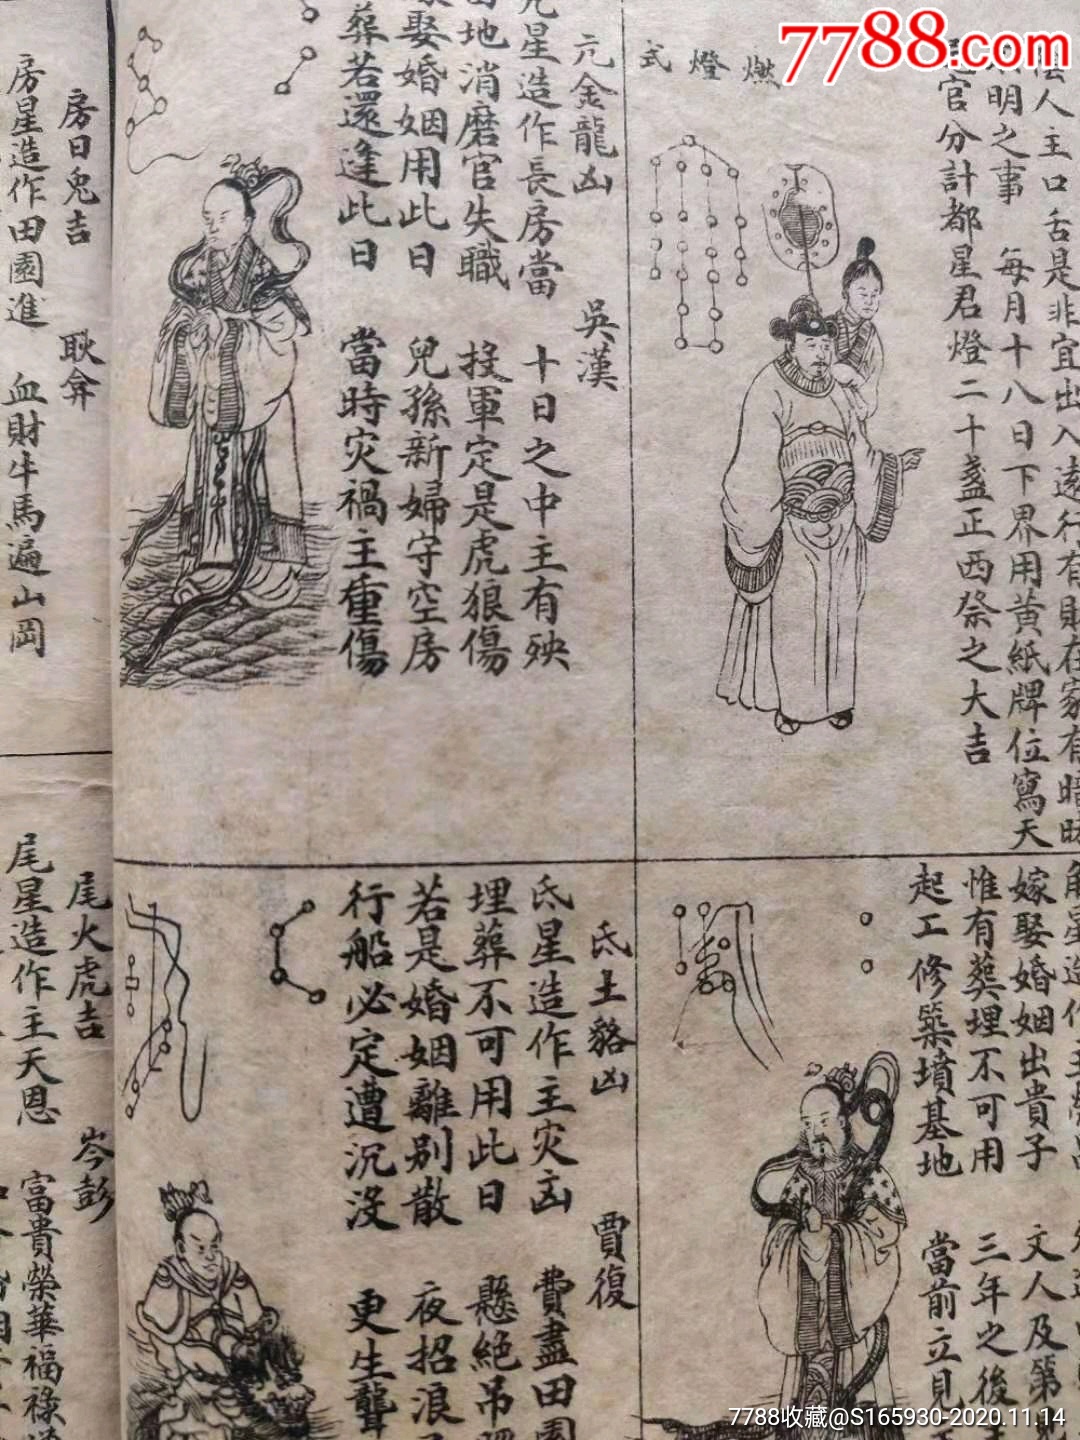 7788.com
陰人主口舌是非宜出入遠行有財在家有暗昧
明之事 每月十八日下界用黃紙牌位寫天
尾官分計都星君燈二十盞正西祭之大吉
燃燈式
亢金龍凶 吳漢
亢星造作長房當 十日之中主有殃
地消磨官失職 投軍定是虎狼傷
嫁娶婚姻用此日 兒孫新婦守空房
葬若還逢此日 當時灾禍主重傷
房日兔吉 耿弇
房星造作田園進 血財牛馬遍山岡
角星造作主榮昌
嫁娶婚姻出貴子 文人及第
惟有葬埋不可用 三年之後
起工修築墳基地 當前立見
氐土貉凶 賈復
氐星造作主灾凶 費盡田園
埋葬不可用此日 懸絕吊
若是婚姻離別散 夜招浪
行船必定遭沉没 更生聾
尾火虎吉 岑彭
尾星造作主天恩 富貴榮華福祿
7788收藏@S165930-2020.11.14